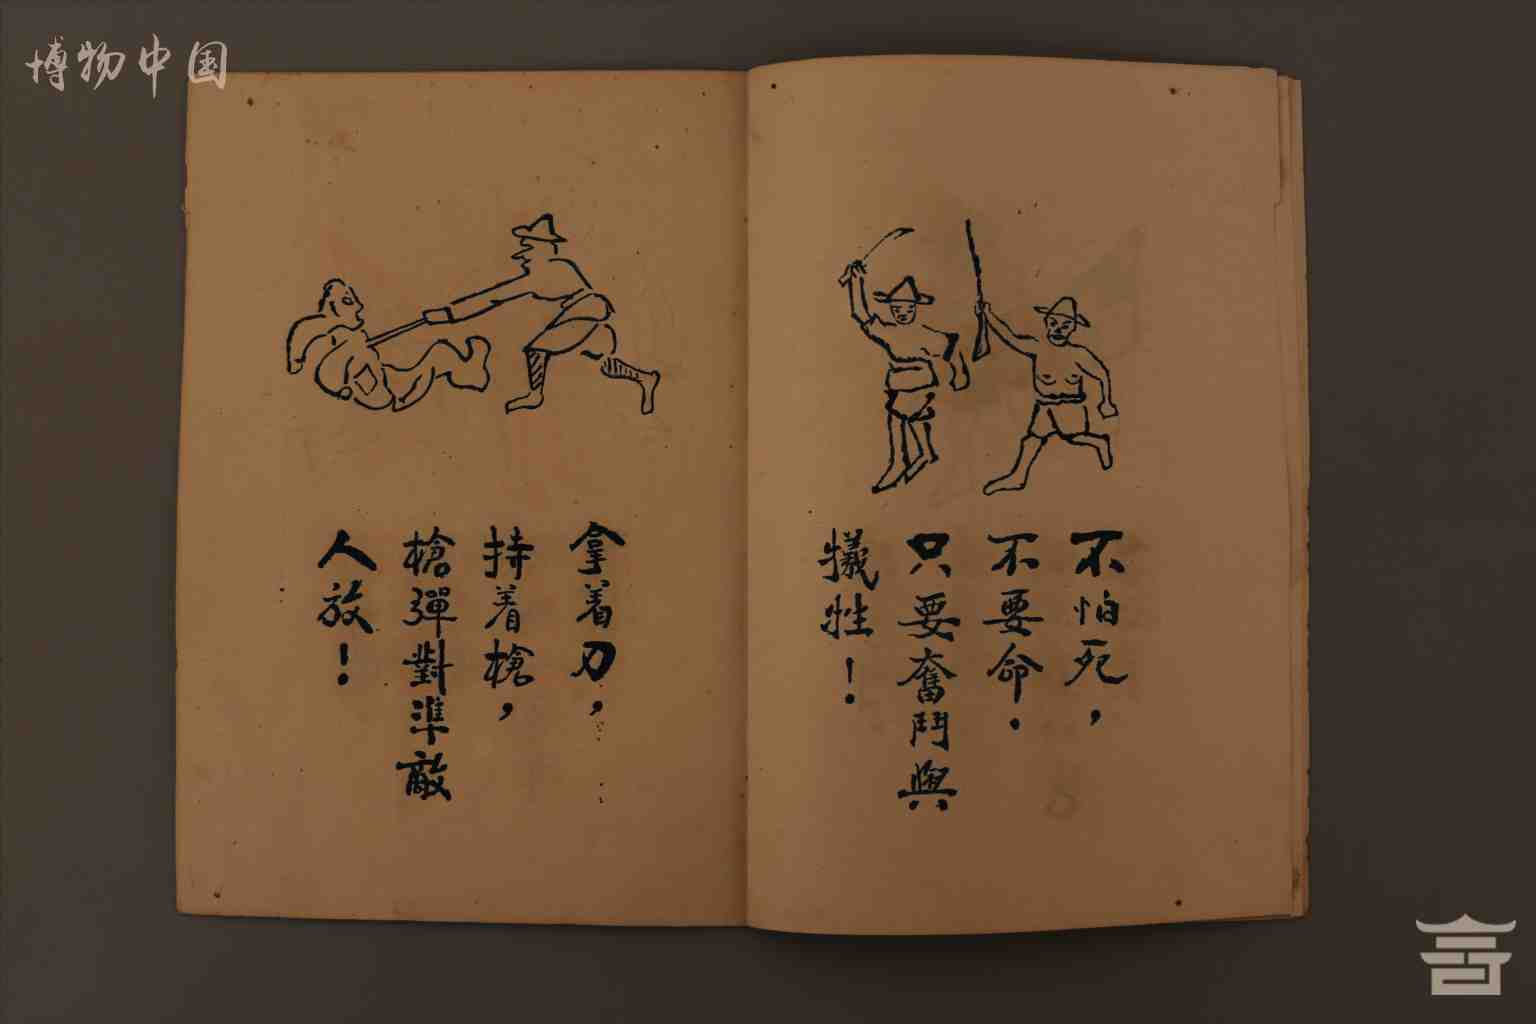 博物中国
不怕死，
不要命．
只要奮鬥與
犧牲！
拿着刀，
持着槍，
槍彈對準敵
人放！